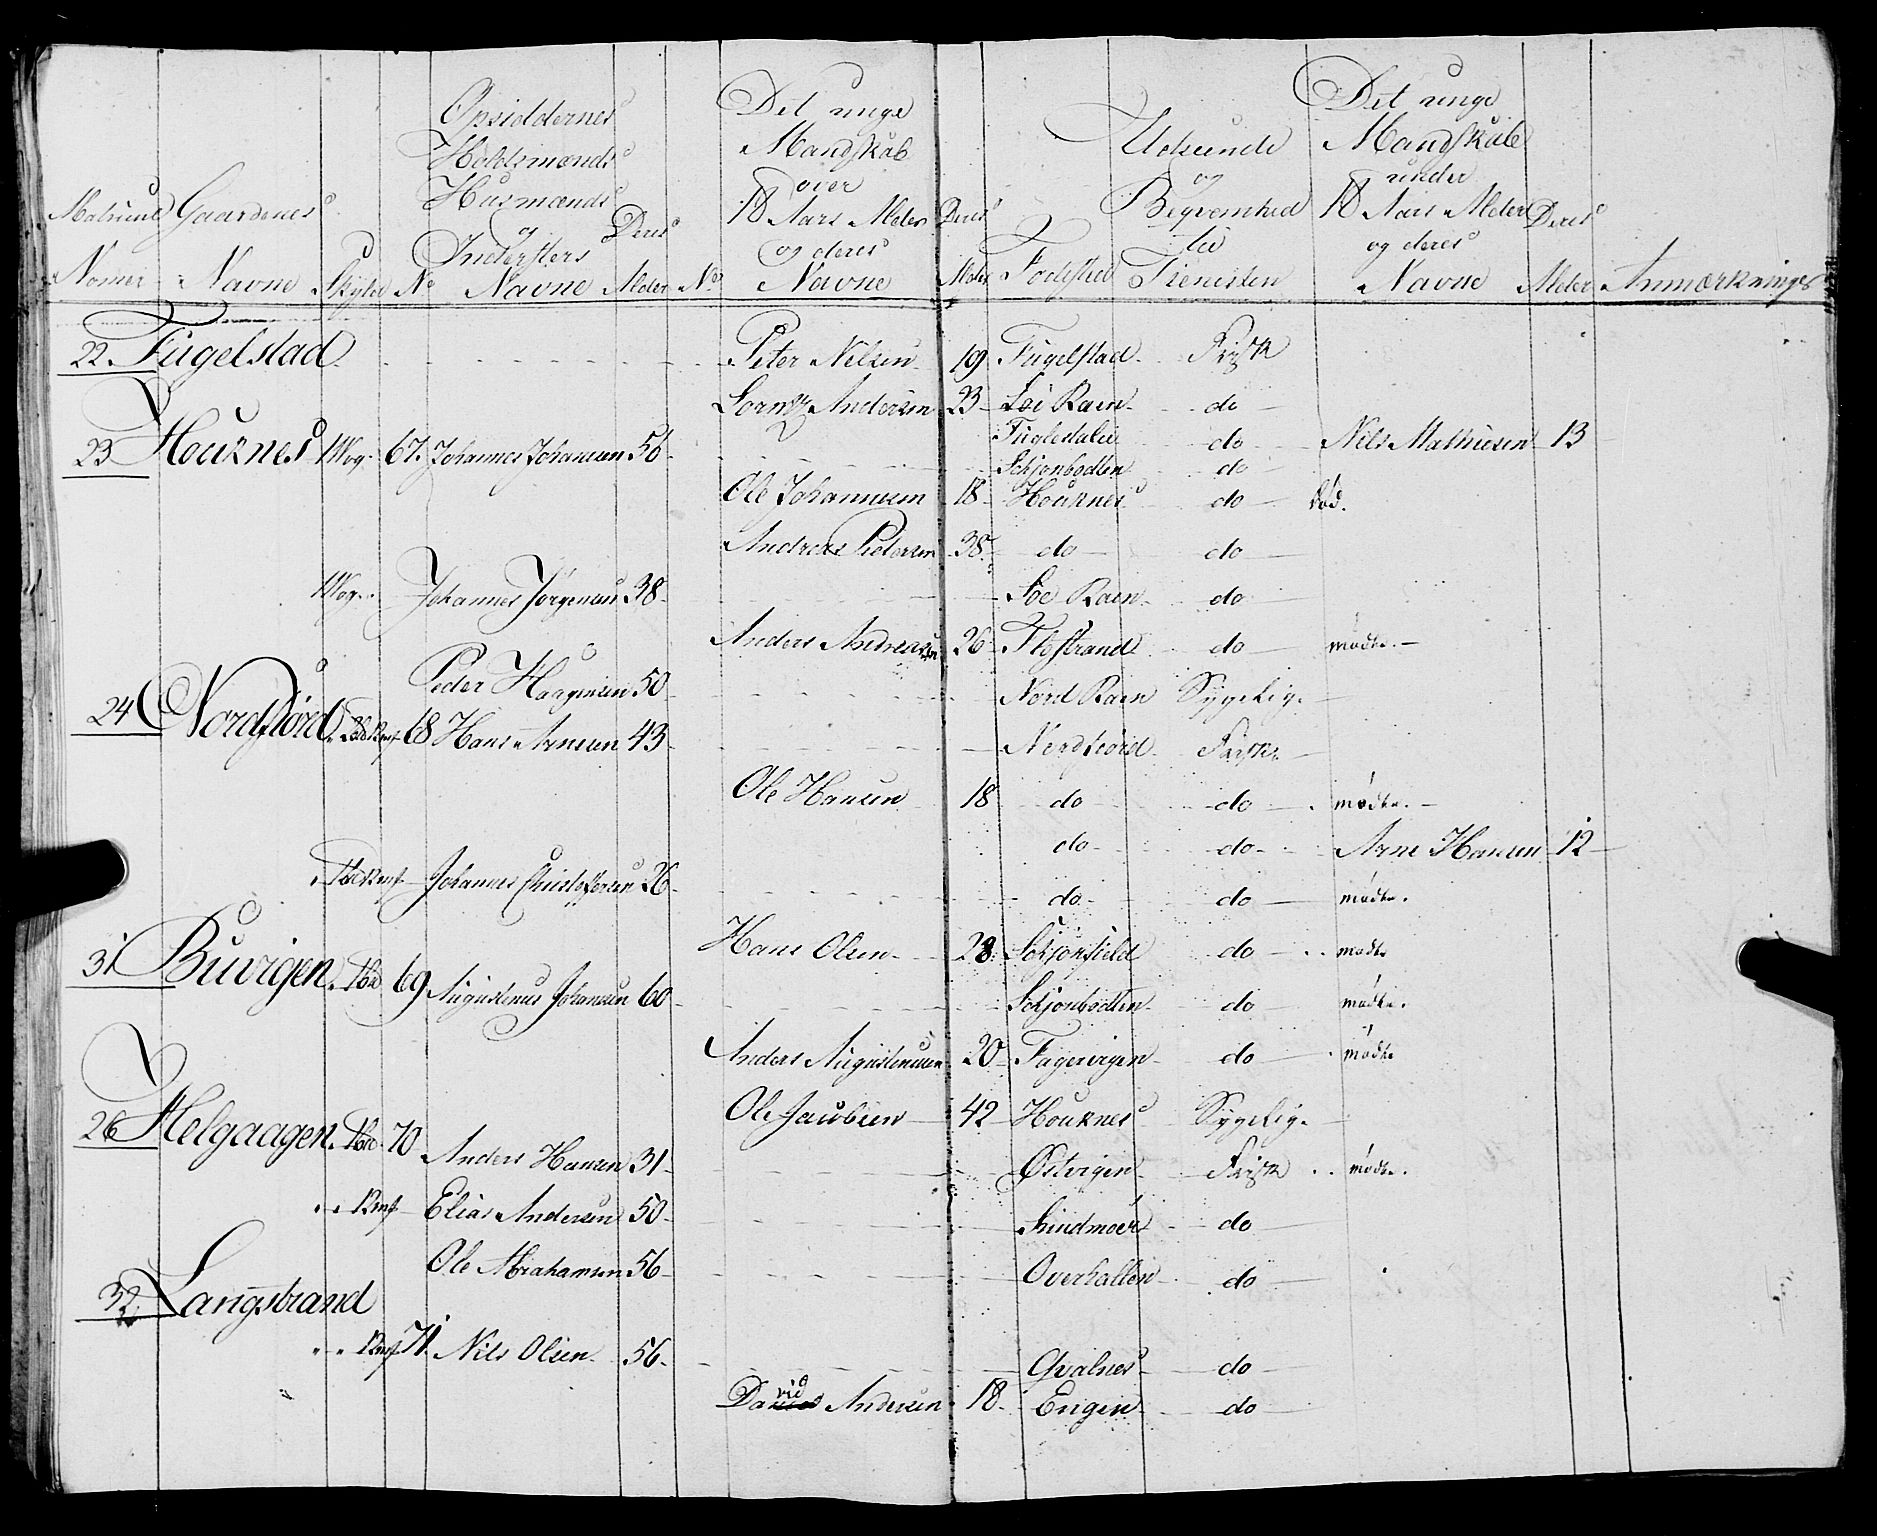 Matricul Nomer
Gaardenes Navne
Skyld
No
Opsiddernes Holdsmænds Husmænds og Inderster's Navne
Deres Alder
No
Det unge Mandskab over 18 Aars Alder og deres Navne
Deres Alder
Fødestad
Udseende og Beqvemhed til Tienesten
Det unge Mandskab under 18 Aars Alder og deres Navne
Deres Alder
Anmærkninger
22. Fugelstad Peter Nilsen 19 Fugelstad Frisk
Lorntz Andersen 23 Søe Raen do
23 Houknes 1 Wog. 67. Johannes Johansen 56 Fugledalen do Nils Mathiesen 13
Schjonbodten do
Ole Johannesen 18 Houknes do død.
Andreas Pedersen 38. do do
1 Wog. Johannes Jørgensen 38 Søe Raen do
Anders Andreasen 26 Flostrand do mødte.
Peder Haagensen 50 Nord Raen Sygelig.
24 Nordfiord 68 Hans Arnesen 43 Nordfiord Frisk
Ole Hansen 18 do do mødte.
do do Arne Hansen 12
Johannes Christoffersen 26 do do mødte.
Hans Olsen 28. Schjonfield do mødte
31 Buvigen 69 Augustinus Johansen 60 Schjonbodten do mødte.
Anders Augustinusen 20 Fagervigen do mødte
Ole Jacobsen 42 Houknes Sygelig.
26 Helgaagen 70 Anders Hansen 31 Østvigen Frisk mødte.
Elias Andersen 50 do
Ole Abrahamsen 56 Overhallen do
32. Langstrand
71. Nils Olsen 56. Qvalnes do
David Andersen 18. Engen do